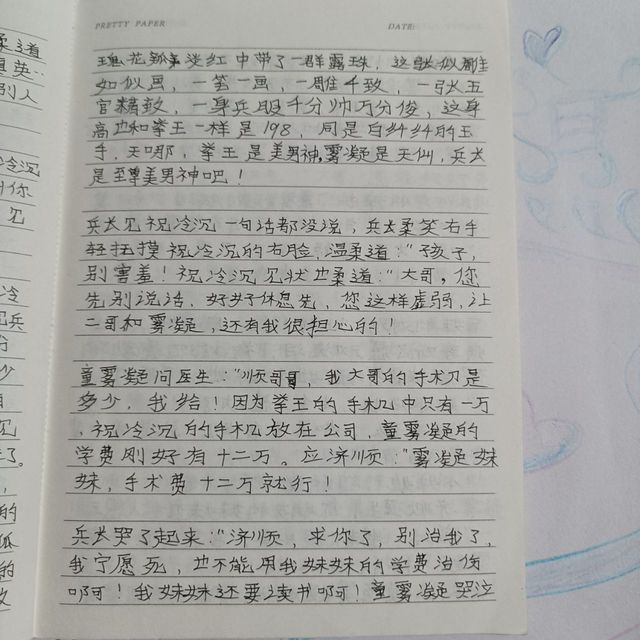 PRETTY PAPER
DATE:
瑰花瓢淡红中带了一群露珠，这张似雕
如似画，一笔一画，一雕千致，一张五
官精致，一身兵服千分帅万分俊，这身
高也和拳王一样是198，同是白纤纤的玉
手，天哪，拳王是美男神，雾凝是天仙，兵长
是至尊美男神吧！
兵长见祝冷沉一句话都没说，兵长柔笑右手
轻抚摸祝冷沉的右脸，温柔道："孩子，
别害羞！祝冷沉见状也柔道："大哥，您
先别说话，好好休息先，您这样虚弱，让
二哥和雾凝，还有我很担心的！
童雾凝问医生："顺哥哥，我大哥的手术刀是
多少，我给！因为拳王的手机中只有一万
，祝冷沉的手机放在公司，童雾凝的
学费刚好有十二万。应济顺："雾凝妹
妹，手术费十二万就行！
兵长哭了起来："济顺，求你了，别治我了，
我宁愿死，也不能用我妹妹的学费治伤
啊！我妹妹还要读书啊！童雾凝哭泣
柔道
英··
别人
冷沉
叫你
见
冷
兵
分
少
见
了。
的
孤
的